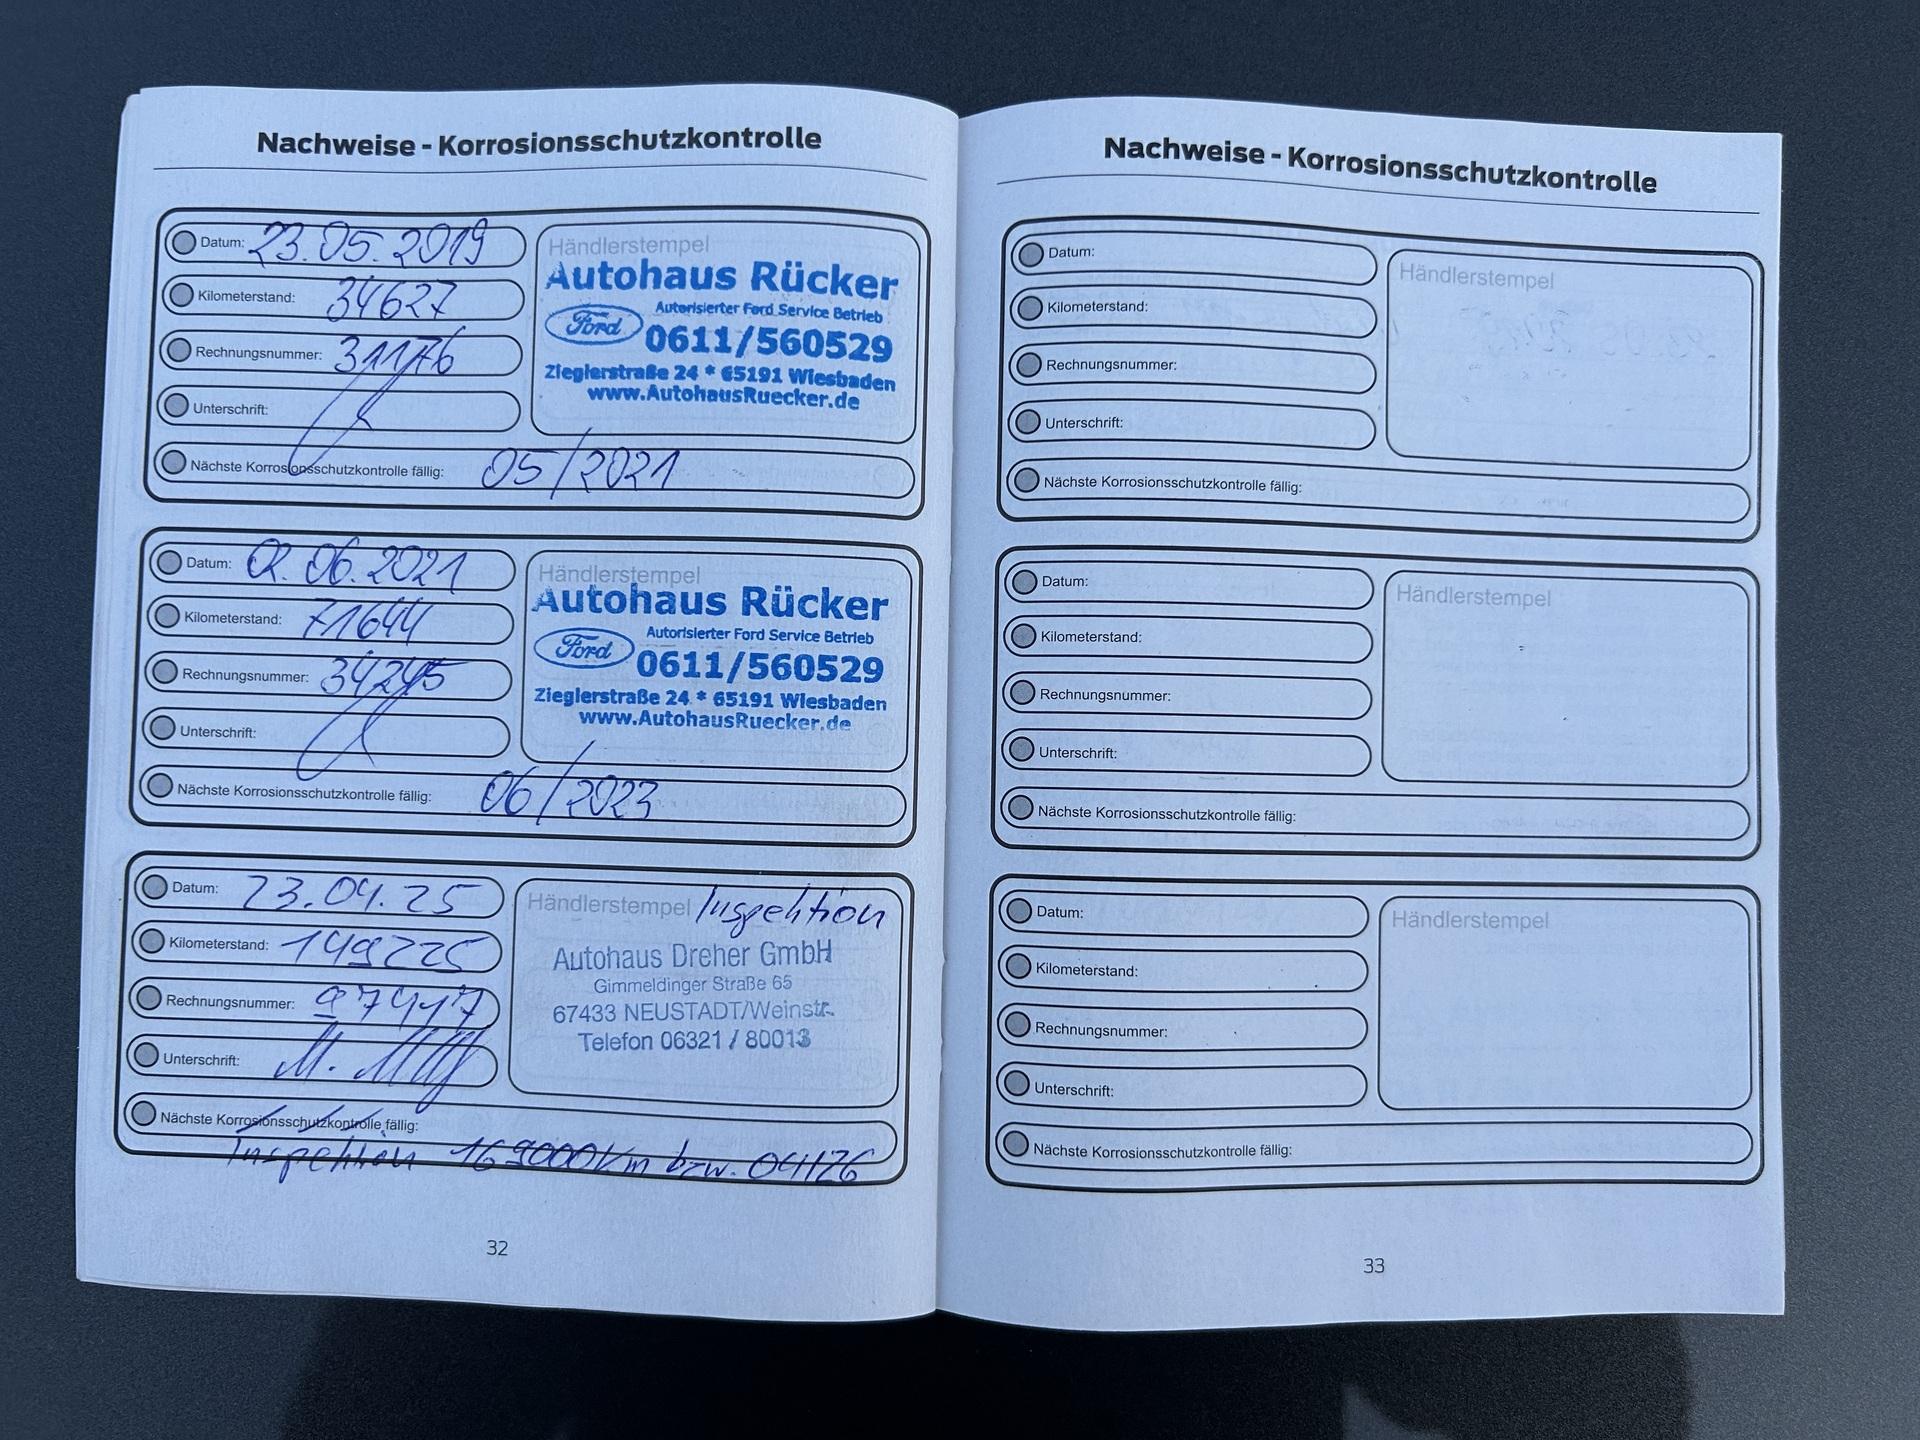 Nachweise - Korrosionsschutzkontrolle
Datum: 23.05.2019
Kilometerstand: 34627
Rechnungsnummer: 31176
Unterschrift:
Nächste Korrosionsschutzkontrolle fällig: 05/2021
Händlerstempel
Autohaus Rücker
Autorisierter Ford Service Betrieb
Ford 0611/560529
Zieglerstraße 24 * 65191 Wiesbaden
www.AutohausRuecker.de
Datum: 02.06.2021
Kilometerstand: 71644
Rechnungsnummer: 34245
Unterschrift:
Nächste Korrosionsschutzkontrolle fällig: 06/2023
Händlerstempel
Autohaus Rücker
Autorisierter Ford Service Betrieb
Ford 0611/560529
Zieglerstraße 24 * 65191 Wiesbaden
www.AutohausRuecker.de
Datum: 23.04.25
Kilometerstand: 149225
Rechnungsnummer:
Unterschrift:
Nächste Korrosionsschutzkontrolle fällig:
Inspektion 169000km bzw. 04/26
Händlerstempel Inspektion
Autohaus Dreher GmbH
Gimmeldinger Straße 65
67433 NEUSTADT/Weinstr.
Telefon 06321 / 80013
32
Nachweise - Korrosionsschutzkontrolle
Datum:
Kilometerstand:
Rechnungsnummer:
Unterschrift:
Nächste Korrosionsschutzkontrolle fällig:
Händlerstempel
Datum:
Kilometerstand:
Rechnungsnummer:
Unterschrift:
Nächste Korrosionsschutzkontrolle fällig:
Händlerstempel
Datum:
Kilometerstand:
Rechnungsnummer:
Unterschrift:
Nächste Korrosionsschutzkontrolle fällig:
Händlerstempel
33